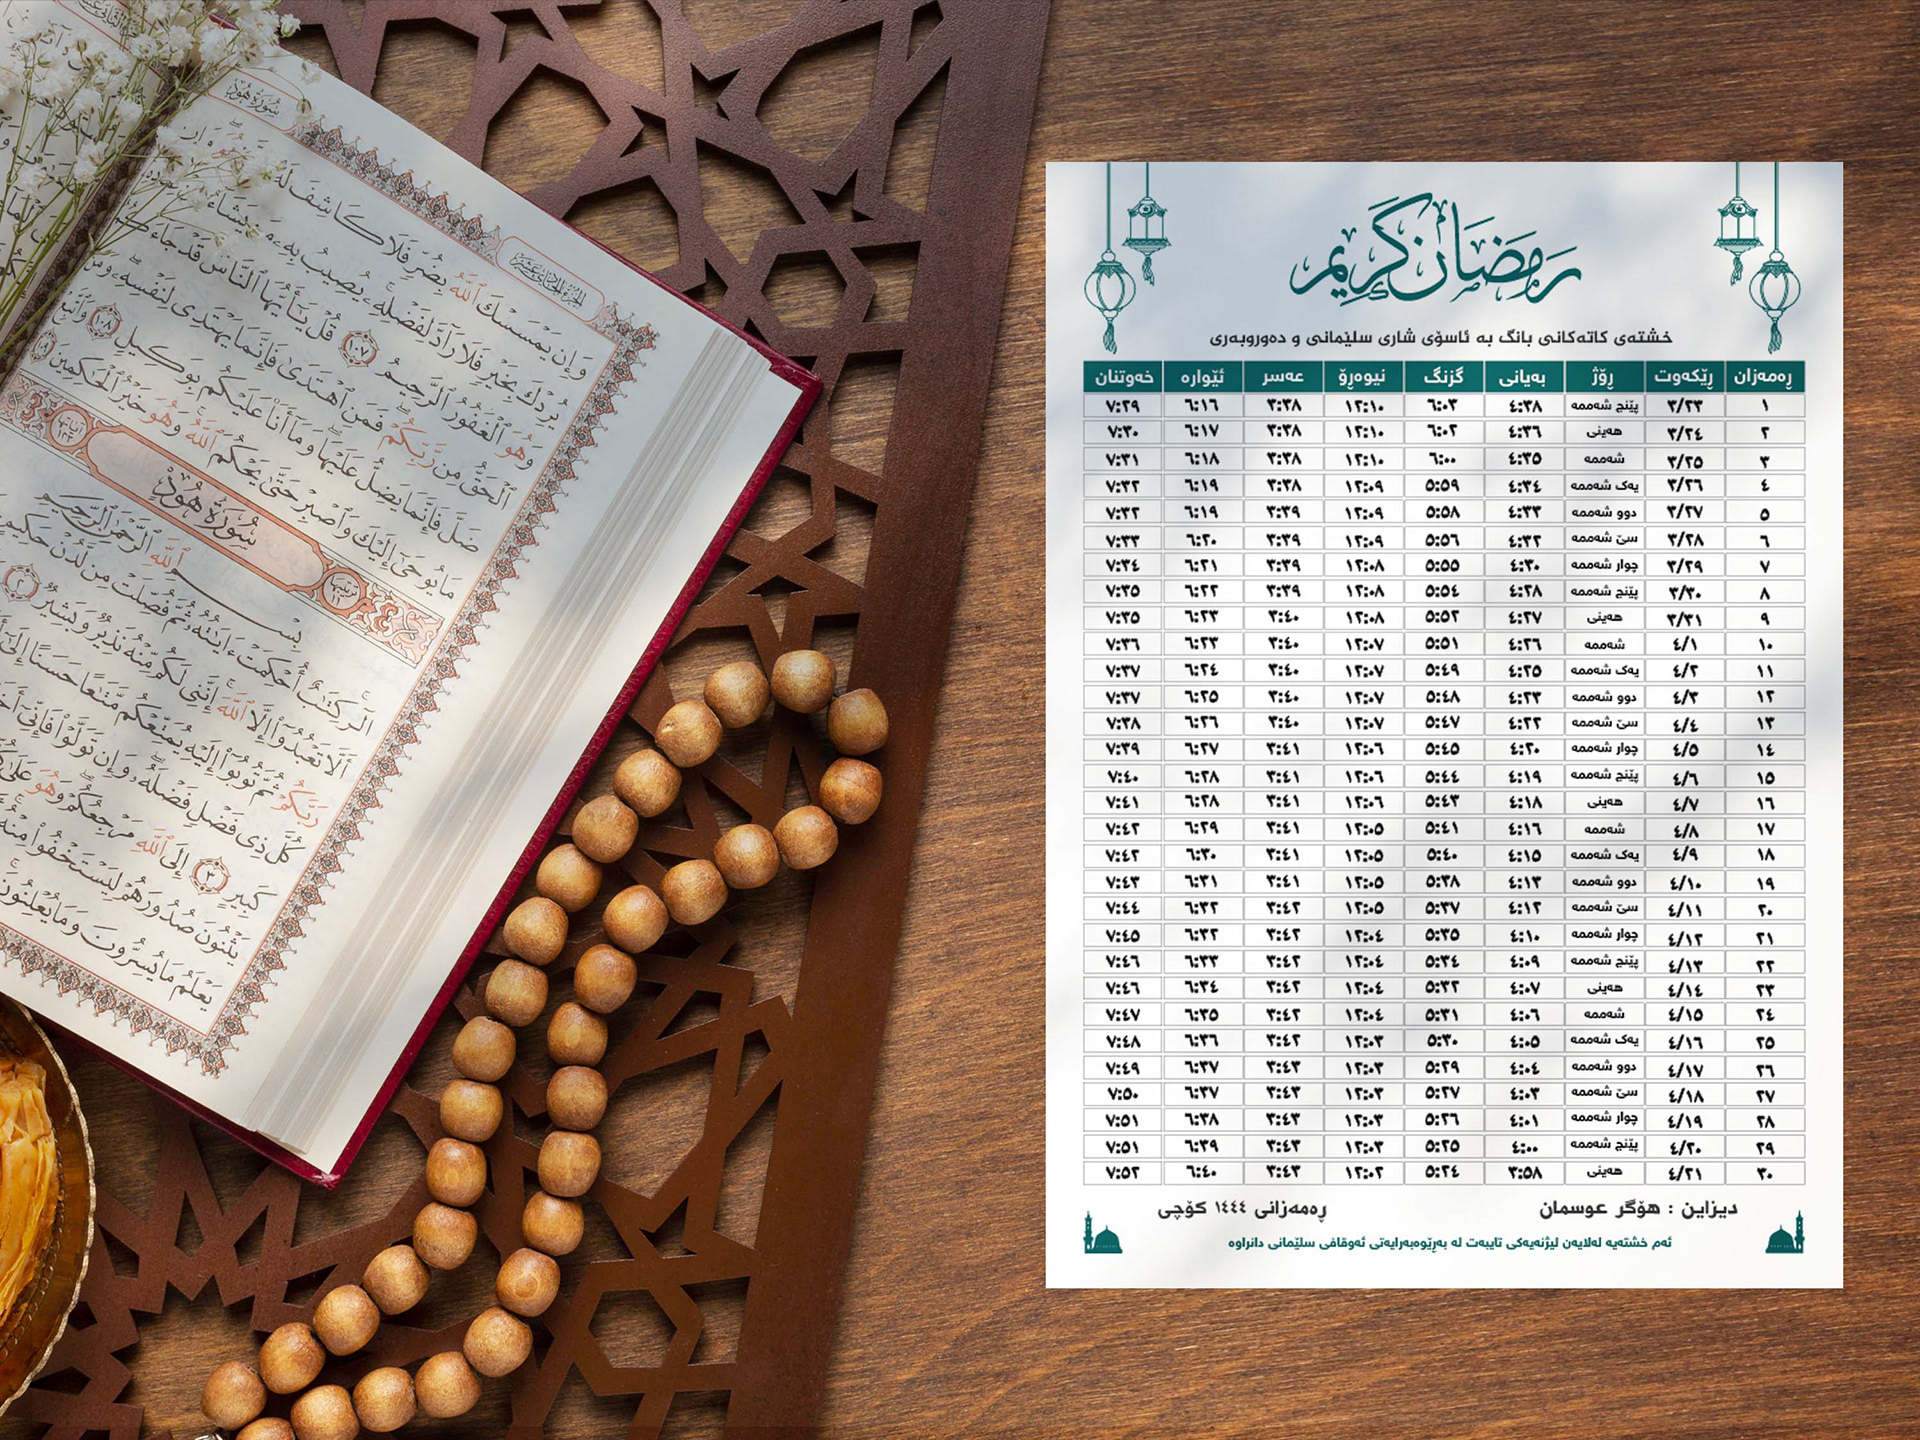 سُورَةُ هُود
الجزء الحادى عشر
وَإِن يَمْسَسْكَ ٱللَّهُ بِضُرٍّ فَلَا كَاشِفَ لَهُۥٓ
يُرِدْكَ بِخَيْرٍ فَلَا رَآدَّ لِفَضْلِهِۦ يُصِيبُ بِهِۦ مَن يَشَآءُ
وَهُوَ ٱلْغَفُورُ ٱلرَّحِيمُ ١٠٧ قُلْ يَٰٓأَيُّهَا ٱلنَّاسُ قَدْ جَآءَكُمُ
ٱلْحَقُّ مِن رَّبِّكُمْ فَمَنِ ٱهْتَدَىٰ فَإِنَّمَا يَهْتَدِى لِنَفْسِهِۦ وَمَن
ضَلَّ فَإِنَّمَا يَضِلُّ عَلَيْهَا وَمَآ أَنَا۠ عَلَيْكُم بِوَكِيلٍ ١٠٨ وَٱتَّبِعْ
مَا يُوحَىٰٓ إِلَيْكَ وَٱصْبِرْ حَتَّىٰ يَحْكُمَ ٱللَّهُ وَهُوَ خَيْرُ ٱلْحَٰكِمِينَ ١٠٩
ترتيبها ١١ سُورَةُ هُودٍ آياتها ١٢٣
بِسْمِ ٱللَّهِ ٱلرَّحْمَٰنِ ٱلرَّحِيمِ
الٓر كِتَٰبٌ أُحْكِمَتْ ءَايَٰتُهُۥ ثُمَّ فُصِّلَتْ مِن لَّدُنْ حَكِيمٍ
أَلَّا تَعْبُدُوٓا۟ إِلَّا ٱللَّهَ إِنَّنِى لَكُم مِّنْهُ نَذِيرٌ وَبَشِيرٌ ٢
رَبَّكُمْ ثُمَّ تُوبُوٓا۟ إِلَيْهِ يُمَتِّعْكُم مَّتَٰعًا حَسَنًا إِلَىٰٓ
كُلَّ ذِى فَضْلٍ فَضْلَهُۥ وَإِن تَوَلَّوْا۟ فَإِنِّىٓ
كَبِيرٍ ٣ إِلَى ٱللَّهِ مَرْجِعُكُمْ وَهُوَ عَلَىٰ
يَثْنُونَ صُدُورَهُمْ لِيَسْتَخْفُوا۟ مِنْهُ
يَعْلَمُ مَا يُسِرُّونَ وَمَا يُعْلِنُونَ
رمضان كريم
خشتەی کاتەکانی بانگ بە ئاسۆی شاری سلێمانی و دەوروبەری
ڕەمەزان ڕێکەوت ڕۆژ بەیانی گزنگ نیوەڕۆ عەسر ئێوارە خەوتنان
١ ٣/٢٣ پێنج شەممە ٤:٣٨ ٦:٠٣ ١٢:١٠ ٣:٣٨ ٦:١٦ ٧:٢٩
٢ ٣/٢٤ هەینی ٤:٣٦ ٦:٠٢ ١٢:١٠ ٣:٣٨ ٦:١٧ ٧:٣٠
٣ ٣/٢٥ شەممە ٤:٣٥ ٦:٠٠ ١٢:١٠ ٣:٣٨ ٦:١٨ ٧:٣١
٤ ٣/٢٦ یەک شەممە ٤:٣٤ ٥:٥٩ ١٢:٠٩ ٣:٣٨ ٦:١٩ ٧:٣٢
٥ ٣/٢٧ دوو شەممە ٤:٣٣ ٥:٥٨ ١٢:٠٩ ٣:٣٩ ٦:١٩ ٧:٣٢
٦ ٣/٢٨ سێ شەممە ٤:٣٢ ٥:٥٦ ١٢:٠٩ ٣:٣٩ ٦:٢٠ ٧:٣٣
٧ ٣/٢٩ چوار شەممە ٤:٣٠ ٥:٥٥ ١٢:٠٨ ٣:٣٩ ٦:٢١ ٧:٣٤
٨ ٣/٣٠ پێنج شەممە ٤:٢٨ ٥:٥٤ ١٢:٠٨ ٣:٣٩ ٦:٢٢ ٧:٣٥
٩ ٣/٣١ هەینی ٤:٢٧ ٥:٥٢ ١٢:٠٨ ٣:٤٠ ٦:٢٣ ٧:٣٥
١٠ ٤/١ شەممە ٤:٢٦ ٥:٥١ ١٢:٠٧ ٣:٤٠ ٦:٢٣ ٧:٣٦
١١ ٤/٢ یەک شەممە ٤:٢٥ ٥:٤٩ ١٢:٠٧ ٣:٤٠ ٦:٢٤ ٧:٣٧
١٢ ٤/٣ دوو شەممە ٤:٢٣ ٥:٤٨ ١٢:٠٧ ٣:٤٠ ٦:٢٥ ٧:٣٧
١٣ ٤/٤ سێ شەممە ٤:٢٢ ٥:٤٧ ١٢:٠٧ ٣:٤٠ ٦:٢٦ ٧:٣٨
١٤ ٤/٥ چوار شەممە ٤:٢٠ ٥:٤٥ ١٢:٠٦ ٣:٤١ ٦:٢٧ ٧:٣٩
١٥ ٤/٦ پێنج شەممە ٤:١٩ ٥:٤٤ ١٢:٠٦ ٣:٤١ ٦:٢٨ ٧:٤٠
١٦ ٤/٧ هەینی ٤:١٨ ٥:٤٣ ١٢:٠٦ ٣:٤١ ٦:٢٨ ٧:٤١
١٧ ٤/٨ شەممە ٤:١٦ ٥:٤١ ١٢:٠٥ ٣:٤١ ٦:٢٩ ٧:٤٢
١٨ ٤/٩ یەک شەممە ٤:١٥ ٥:٤٠ ١٢:٠٥ ٣:٤١ ٦:٣٠ ٧:٤٢
١٩ ٤/١٠ دوو شەممە ٤:١٣ ٥:٣٨ ١٢:٠٥ ٣:٤١ ٦:٣١ ٧:٤٣
٢٠ ٤/١١ سێ شەممە ٤:١٢ ٥:٣٧ ١٢:٠٥ ٣:٤٢ ٦:٣٢ ٧:٤٤
٢١ ٤/١٢ چوار شەممە ٤:١٠ ٥:٣٥ ١٢:٠٤ ٣:٤٢ ٦:٣٢ ٧:٤٥
٢٢ ٤/١٣ پێنج شەممە ٤:٠٩ ٥:٣٤ ١٢:٠٤ ٣:٤٢ ٦:٣٣ ٧:٤٦
٢٣ ٤/١٤ هەینی ٤:٠٧ ٥:٣٢ ١٢:٠٤ ٣:٤٢ ٦:٣٤ ٧:٤٦
٢٤ ٤/١٥ شەممە ٤:٠٦ ٥:٣١ ١٢:٠٤ ٣:٤٢ ٦:٣٥ ٧:٤٧
٢٥ ٤/١٦ یەک شەممە ٤:٠٥ ٥:٣٠ ١٢:٠٣ ٣:٤٢ ٦:٣٦ ٧:٤٨
٢٦ ٤/١٧ دوو شەممە ٤:٠٤ ٥:٢٩ ١٢:٠٣ ٣:٤٣ ٦:٣٧ ٧:٤٩
٢٧ ٤/١٨ سێ شەممە ٤:٠٣ ٥:٢٧ ١٢:٠٣ ٣:٤٣ ٦:٣٧ ٧:٥٠
٢٨ ٤/١٩ چوار شەممە ٤:٠١ ٥:٢٦ ١٢:٠٣ ٣:٤٣ ٦:٣٨ ٧:٥١
٢٩ ٤/٢٠ پێنج شەممە ٤:٠٠ ٥:٢٥ ١٢:٠٣ ٣:٤٣ ٦:٣٩ ٧:٥١
٣٠ ٤/٢١ هەینی ٣:٥٨ ٥:٢٤ ١٢:٠٢ ٣:٤٣ ٦:٤٠ ٧:٥٢
دیزاین : هۆگر عوسمان ڕەمەزانی ١٤٤٤ کۆچی
ئەم خشتەیە لەلایەن لیژنەیەکی تایبەت لە بەڕێوەبەرایەتی ئەوقافی سلێمانی دانراوە